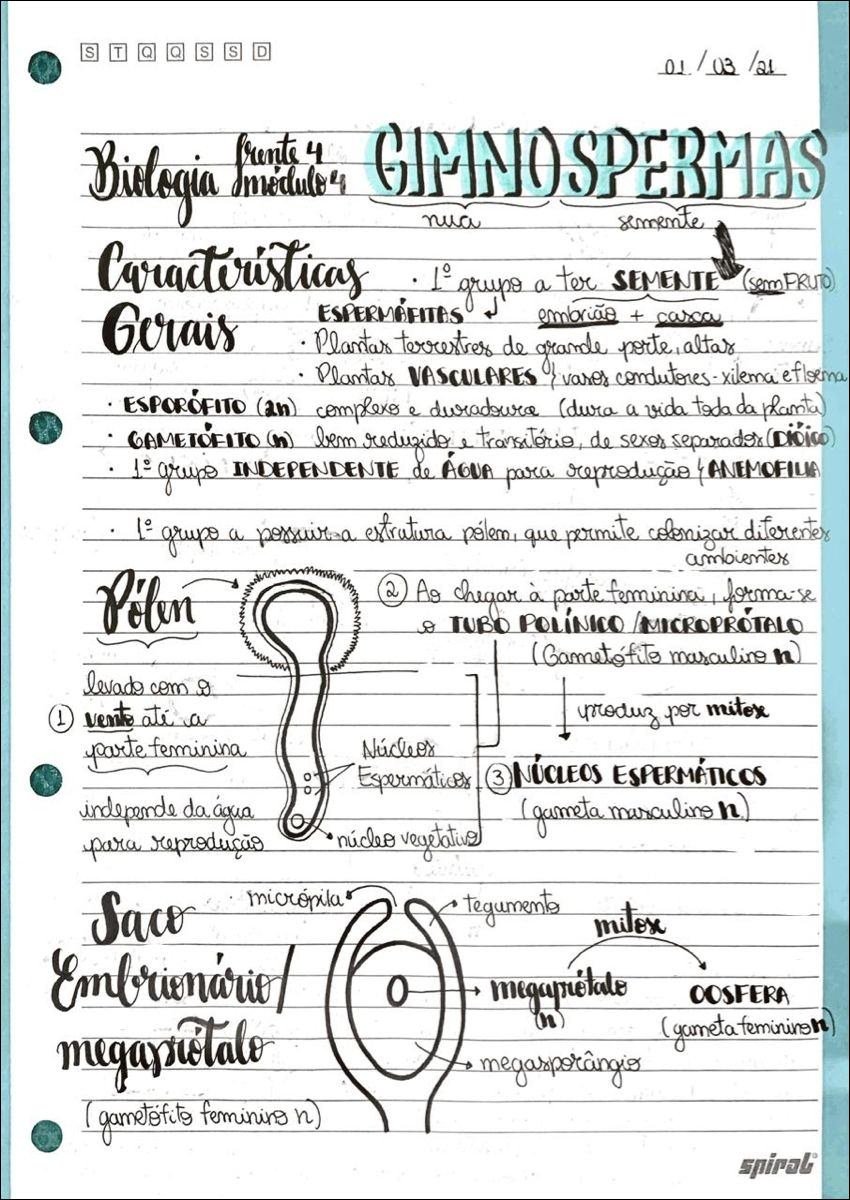 S T Q Q S S D
01/03/21
Biologia frente 4 módulo 4 GIMNOSPERMAS
nua semente
Características Gerais
· 1º grupo a ter SEMENTE (sem FRUTO)
ESPERMÁFITAS embrião + casca
· Plantas terrestres de grande porte, altas
· Plantas VASCULARES / vasos condutores - xilema e floema
· ESPORÓFITO (2n) complexo e duradouro (dura a vida toda da planta)
· GAMETÓFITO (n) bem reduzido e transitório, de sexos separados (DIÓICO)
· 1º grupo INDEPENDENTE de ÁGUA para reprodução / ANEMOFILIA
· 1º grupo a possuir a estrutura pólen, que permite colonizar diferentes
ambientes
Pólen
1 levado com o
vento até a
parte feminina
independe da água
para reprodução
Núcleos
Espermáticos
núcleo vegetativo
2 Ao chegar à parte feminina, forma-se
o TUBO POLÍNICO / MICROPRÓTALO
(Gametófito masculino n)
produz por mitose
3 NÚCLEOS ESPERMÁTICOS
(gameta masculino n)
Saco
Embrionário/
megaprótalo
(gametófito feminino n)
micrópila
tegumento
megaprótalo
(n)
megasporângio
mitose
OOSFERA
(gameta feminino n)
spiral